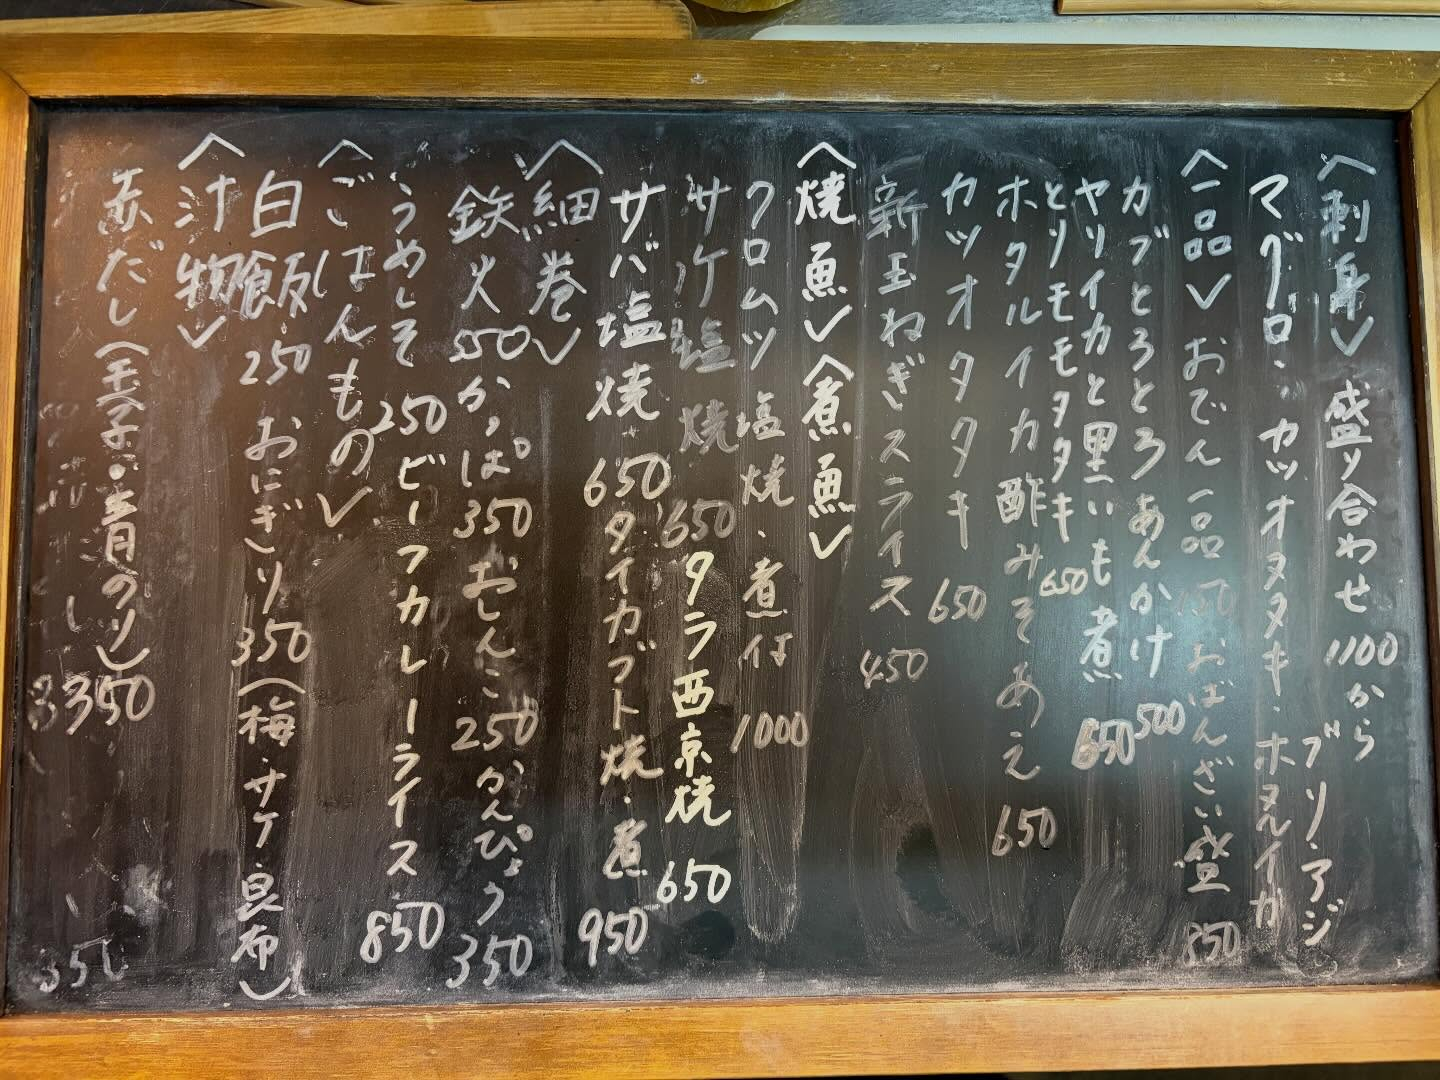 〈刺身〉 盛り合わせ 1100から
ブリ・アジ
マグロ・カツオタタキ・ホタルイカ
〈一品〉 おでん一品 150 おばんざい盛 850
カブとろとろあんかけ 500
ヤリイカと里いも煮 650
とりモモタタキ 650
ホタルイカ酢みそあえ 650
カツオタタキ 650
新玉ねぎスライス 450
〈焼魚〉〈煮魚〉
クロムツ塩焼・煮付 1000
サケ塩焼 650 タラ西京焼 650
サバ塩焼 650 タイカブト焼・煮 950
〈細巻〉
鉄火 550 かっぱ 350 おしんこ 250 かんぴょう 350
うめしそ 250 ビーフカレーライス 850
〈ごはんもの〉
白飯 250 おにぎり 350 (梅・サケ・昆布)
〈汁物〉
赤だし(玉子・青のり) 350
350